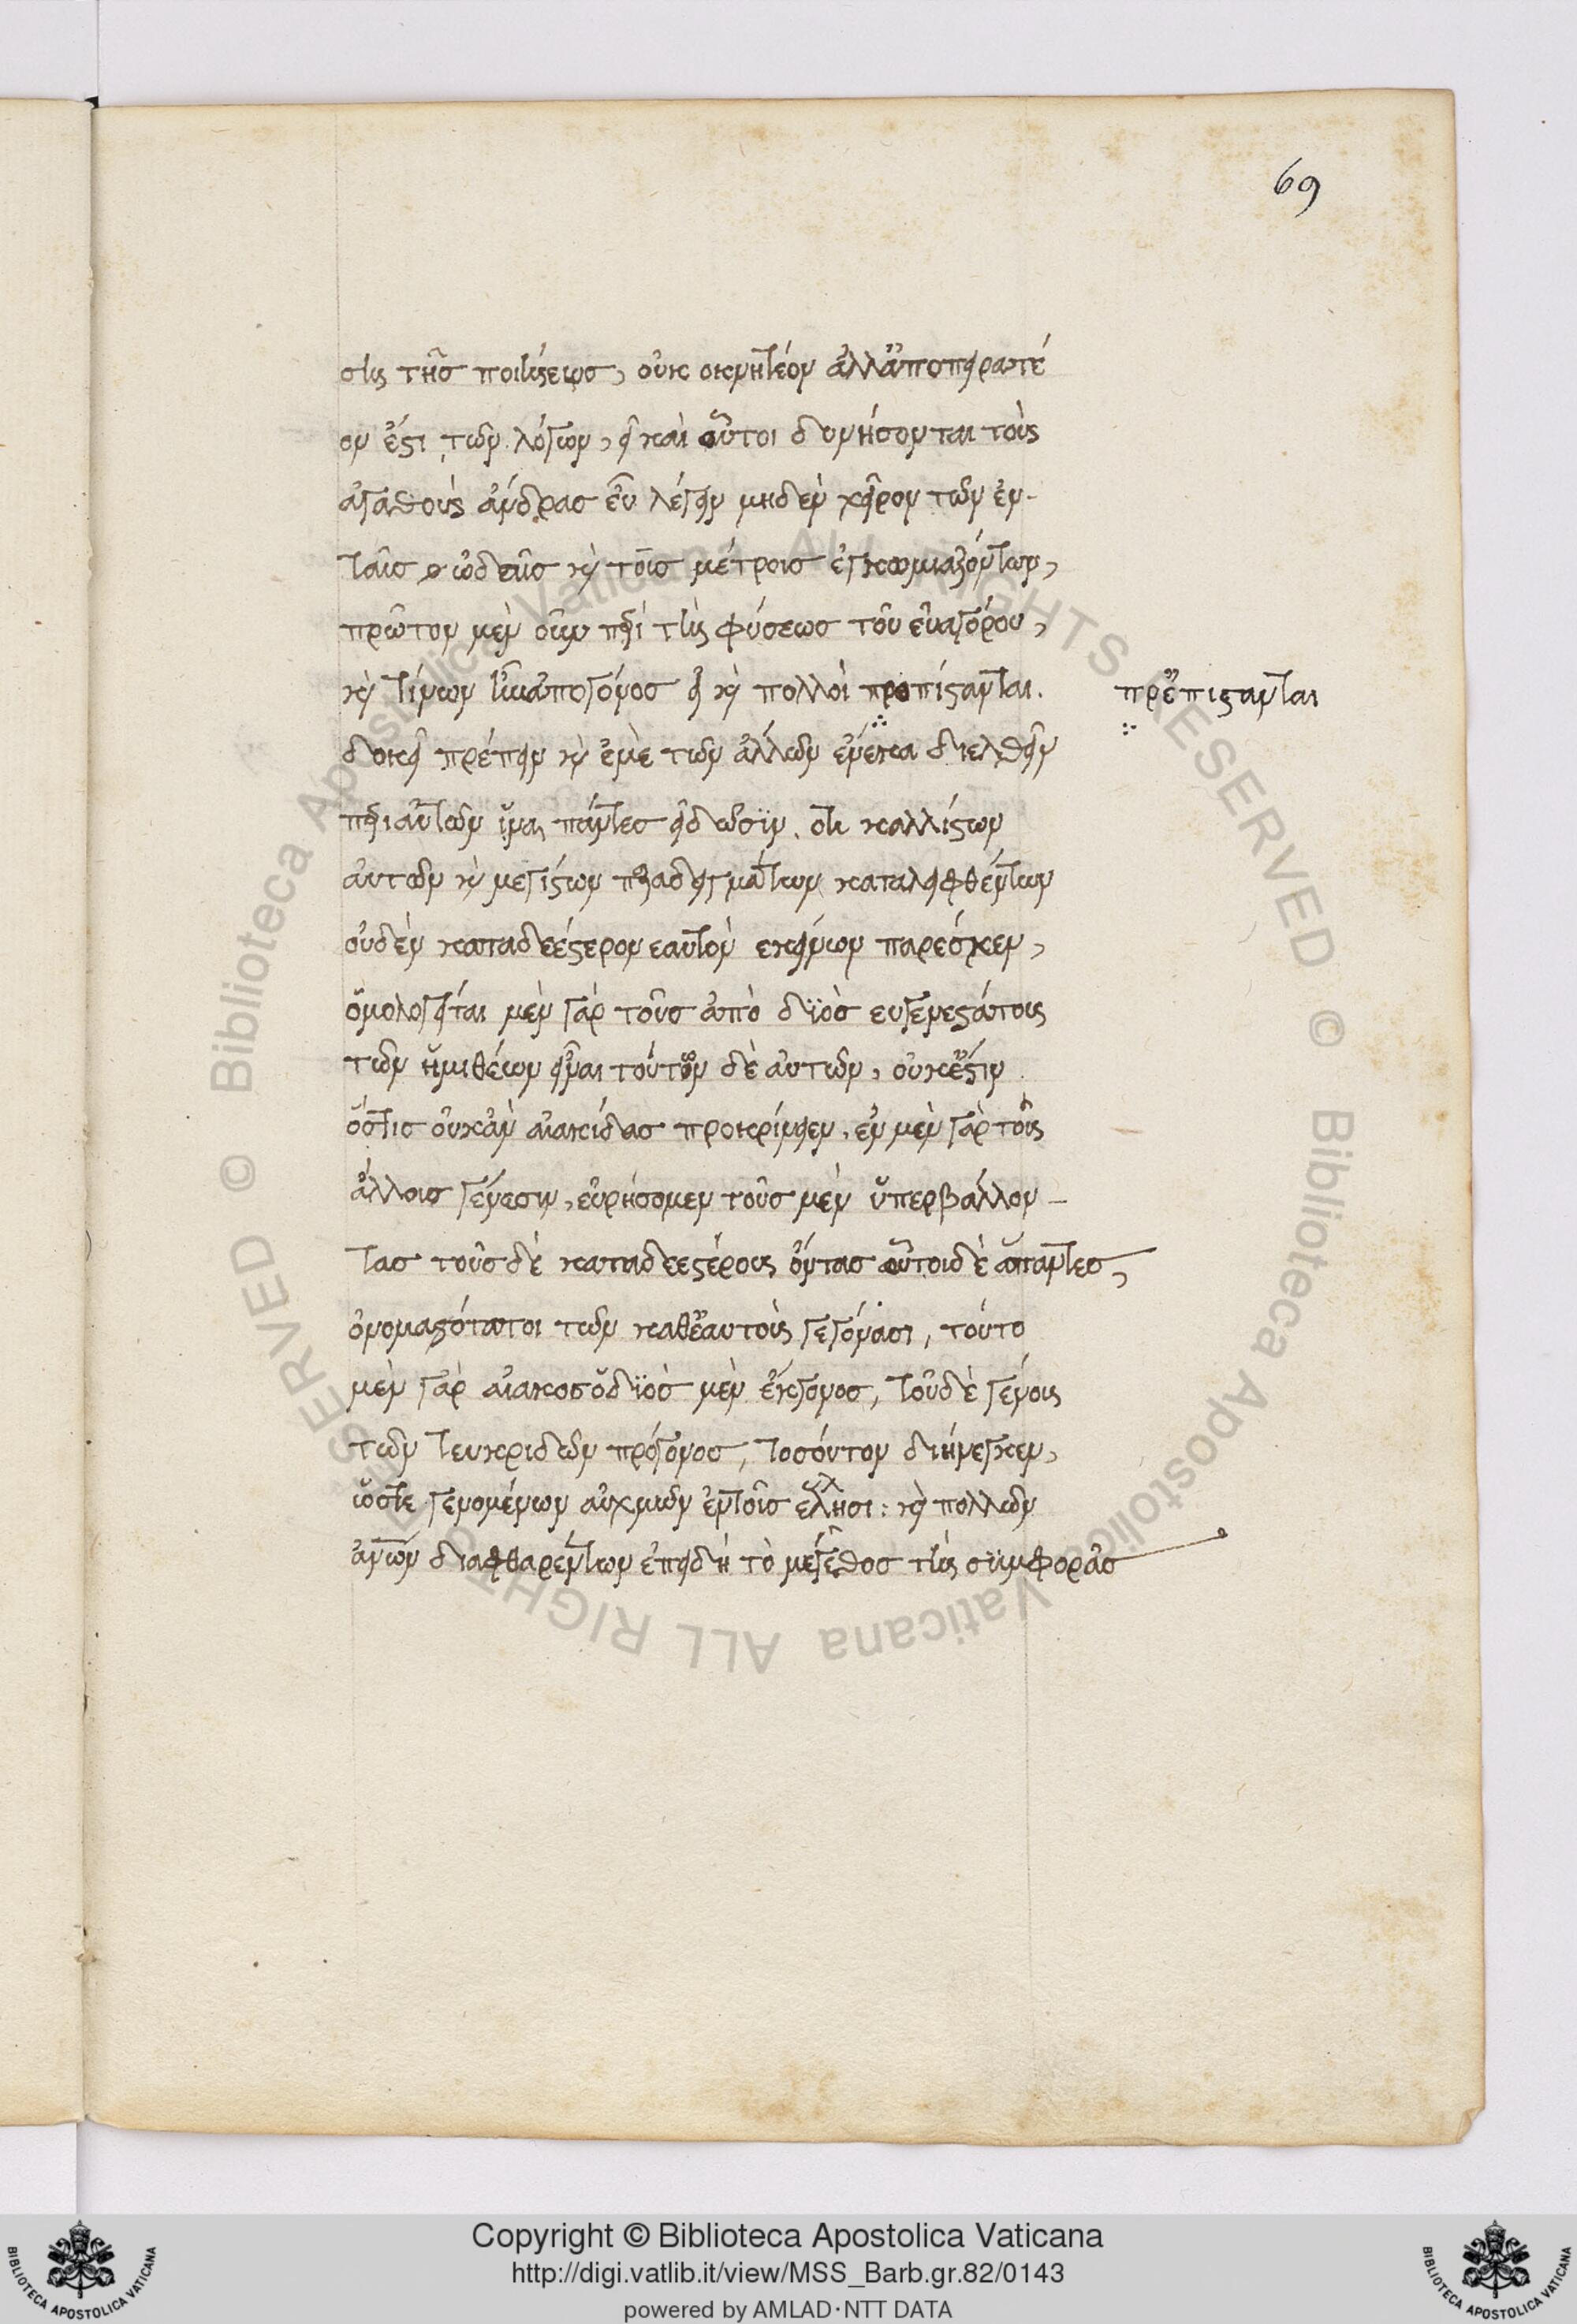 69
σις τῆς ποιήσεως, οὐκ ὀκνητέον ἀλλ' ἀποπειρατέ
ον ἐστὶ τῶν λόγων, εἰ καὶ οὗτοι δυνήσονται τοὺς
ἀγαθοὺς ἄνδρας εὖ λέγειν μηδὲν χεῖρον τῶν ἐν-
ταῖς ὠδαῖς καὶ τοῖς μέτροις ἐγκωμιαζόντων,
πρῶτον μὲν οὖν περὶ τῆς φύσεως τοῦ εὐαγόρου,
καὶ τίνων ἦν ἀπόγονος εἰ καὶ πολλοὶ προπίστανται.
πρὀεπίστανται
δοκεῖ πρέπειν καὶ ἐμὲ τῶν ἄλλων ἕνεκα διελθεῖν
περὶ αὐτῶν ἵνα πάντες εἰδῶσϊν. ὅτι καλλίστων
αὐτῶν καὶ μεγίστων παραδειγμάτων καταλειφθέντων
οὐδὲν καταδεέστερον ἑαυτὸν ἐκείνων παρέσχεν,
ὁμολογεῖται μὲν γὰρ τοὺς ἀπὸ δϊὸς εὐγενεστάτους
τῶν ἡμιθέων εἶναι τούτων δὲ αὐτῶν, οὐκ ἔστιν
ὅστις οὐκ ἂν αἰακίδας προκρίνειεν, ἐν μὲν γὰρ τοῖς
ἄλλοις γένεσιν, εὑρήσομεν τοὺς μὲν ὑπερβάλλον-
τας τοὺς δὲ καταδεεστέρους ὄντας οὗτοι δὲ ἅπαντες,
ὀνομαστότατοι τῶν καθ' ἑαυτοὺς γεγόνασι, τοῦτο
μὲν γὰρ αἰακὸς ὁ δϊὸς μὲν ἔκγονος, τοῦ δὲ γένους
τῶν τευκριδῶν πρόγονος, τοσοῦτον διήνεγκεν,
ὥστε γενομένων αὐχμῶν ἐν τοῖς ἕλλησι: καὶ πολλῶν
ἀνων διαφθαρέντων ἐπειδὴ τὸ μέγεθος τῆς σϋμφορᾶς
Copyright © Biblioteca Apostolica Vaticana
http://digi.vatlib.it/view/MSS_Barb.gr.82/0143
powered by AMLAD·NTT DATA